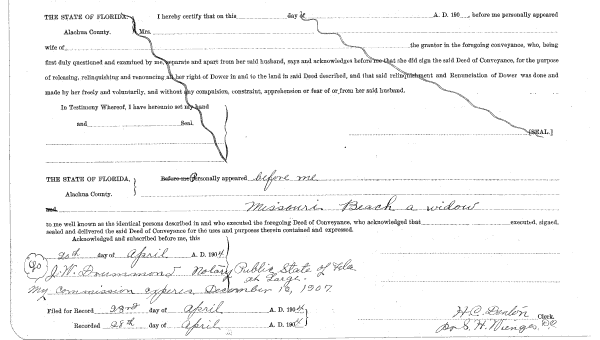 THE STATE OF FLORIDA, I hereby certify that on this day of A. D. 190 , before me personally appeared
Alachua County. Mrs.
wife of the grantor in the foregoing conveyance, who, being
first duly questioned and examined by me, separate and apart from her said husband, says and acknowledges before me that she did sign the said Deed of Conveyance, for the purpose
of releasing, relinquishing and renouncing all her right of Dower in and to the land in said Deed described, and that said relinquishment and Renunciation of Dower was done and
made by her freely and voluntarily, and without any compulsion, constraint, apprehension or fear of or from her said husband.
In Testimony Whereof, I have hereunto set my hand
and Seal.
[SEAL.]
THE STATE OF FLORIDA, Before me personally appeared before me
Alachua County.
and Missouri Beach a widow
to me well known as the identical persons described in and who executed the foregoing Deed of Conveyance, who acknowledged that executed, signed,
sealed and delivered the said Deed of Conveyance for the uses and purposes therein contained and expressed.
Acknowledged and subscribed before me, this
20th day of April A. D. 1904
J. W. Drummond Notary Public State of Fla
at Large.
My Commission expires December 16, 1907
Filed for Record 23rd day of April A. D. 1904
H. C. Denton Clerk.
Recorded 28th day of April A. D. 1904
S. H. Wienges D.C.